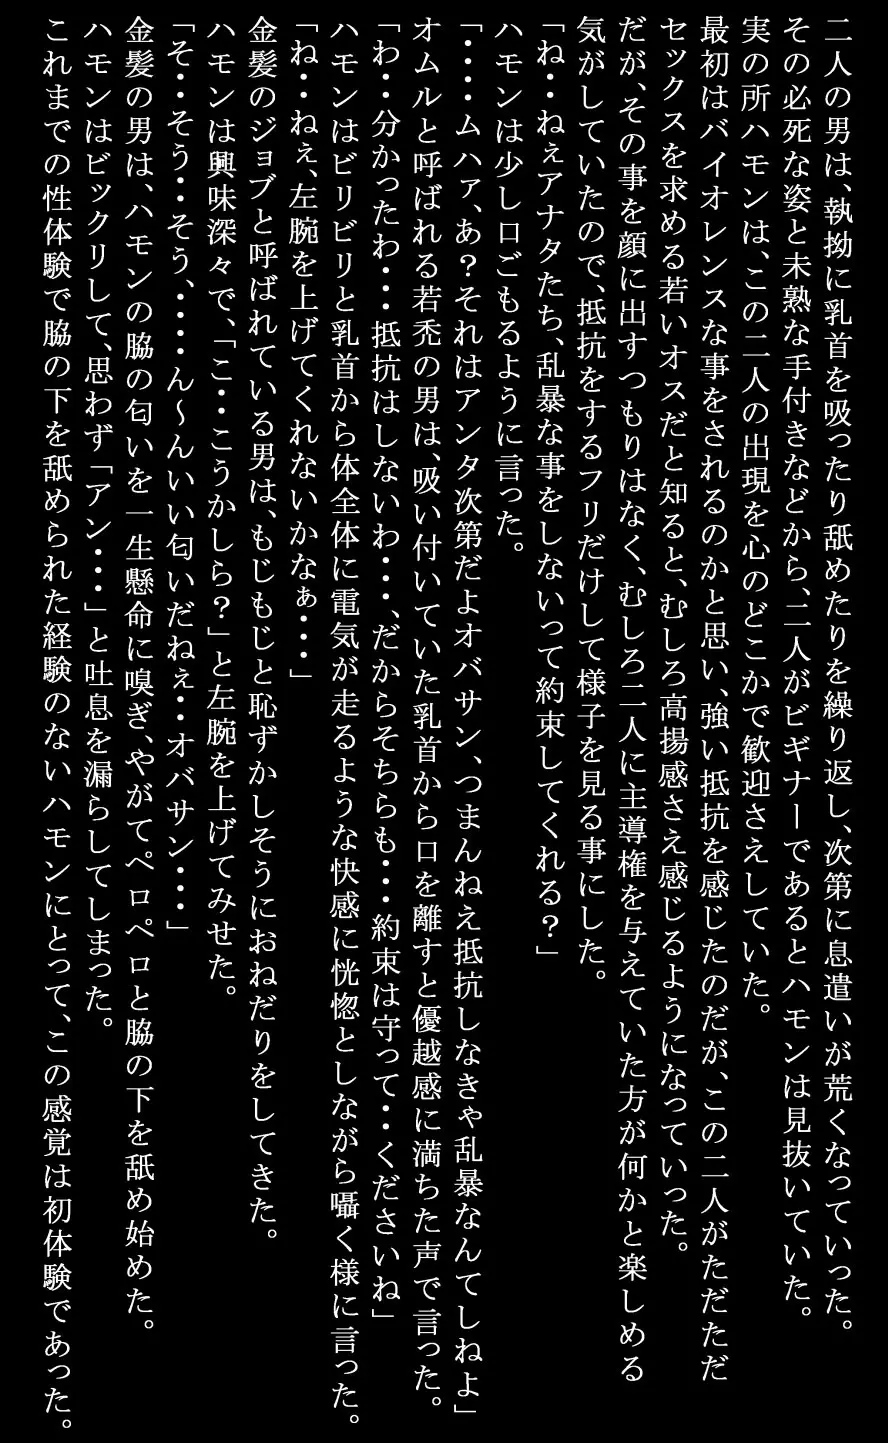 二人の男は、執拗に乳首を吸ったり舐めたりを繰り返し、次第に息遣いが荒くなっていった。
その必死な姿と未熟な手付きなどから、二人がビギナーであるとハモンは見抜いていた。
実の所ハモンは、この二人の出現を心のどこかで歓迎さえしていた。
最初はバイオレンスな事をされるのかと思い、強い抵抗を感じたのだが、この二人がただただ
セックスを求める若いオスだと知ると、むしろ高揚感さえ感じるようになっていった。
だが、その事を顔に出すつもりはなく、むしろ二人に主導権を与えていた方が何かと楽しめる
気がしていたので、抵抗をするフリだけして様子を見る事にした。
「ね・・ねぇアナタたち、乱暴な事をしないって約束してくれる？」
ハモンは少し口ごもるように言った。
「・・・・ムハァ、あ？それはアンタ次第だよオバサン、つまんねえ抵抗しなきゃ乱暴なんてしねよ」
オムルと呼ばれる若禿の男は、吸い付いていた乳首から口を離すと優越感に満ちた声で言った。
「わ・・分かったわ・・・抵抗はしないわ・・・、だからそちらも・・・約束は守って・・くださいね」
ハモンはビリビリと乳首から体全体に電気が走るような快感に恍惚としながら囁く様に言った。
「ね・・ねぇ、左腕を上げてくれないかなぁ・・・」
金髪のジョブと呼ばれている男は、もじもじと恥ずかしそうにおねだりをしてきた。
ハモンは興味深々で、「こ・・こうかしら？」と左腕を上げてみせた。
「そ・・そう・・そう、・・・・ん～んいい匂いだねぇ・・オバサン・・・」
金髪の男は、ハモンの脇の匂いを一生懸命に嗅ぎ、やがてペロペロと脇の下を舐め始めた。
ハモンはビックリして、思わず「アン・・・」と吐息を漏らしてしまった。
これまでの性体験で脇の下を舐められた経験のないハモンにとって、この感覚は初体験であった。